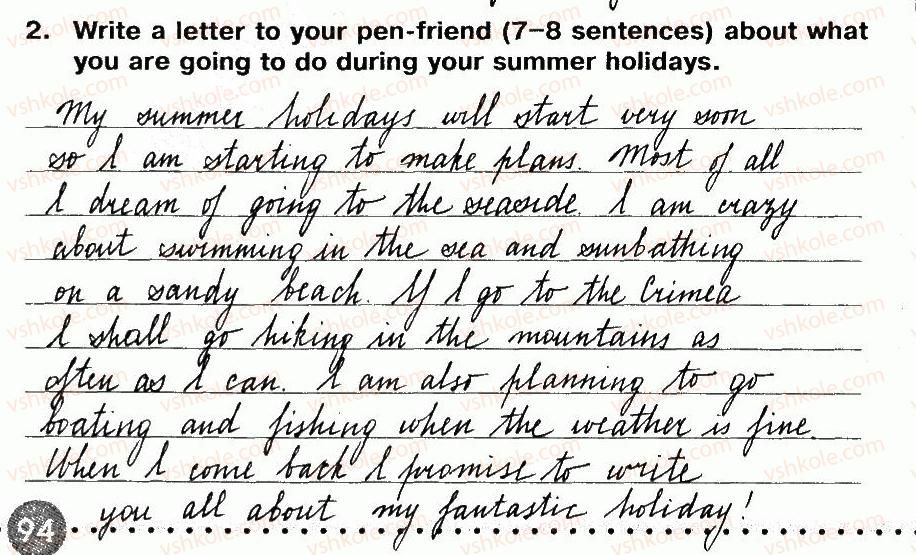 2. Write a letter to your pen-friend (7–8 sentences) about what
you are going to do during your summer holidays.
My summer holidays will start very soon
so I am starting to make plans. Most of all
I dream of going to the seaside. I am crazy
about swimming in the sea and sunbathing
on a sandy beach. If I go to the Crimea
I shall go hiking in the mountains as
often as I can. I am also planning to go
boating and fishing when the weather is fine.
When I come back I promise to write
you all about my fantastic holiday!
94